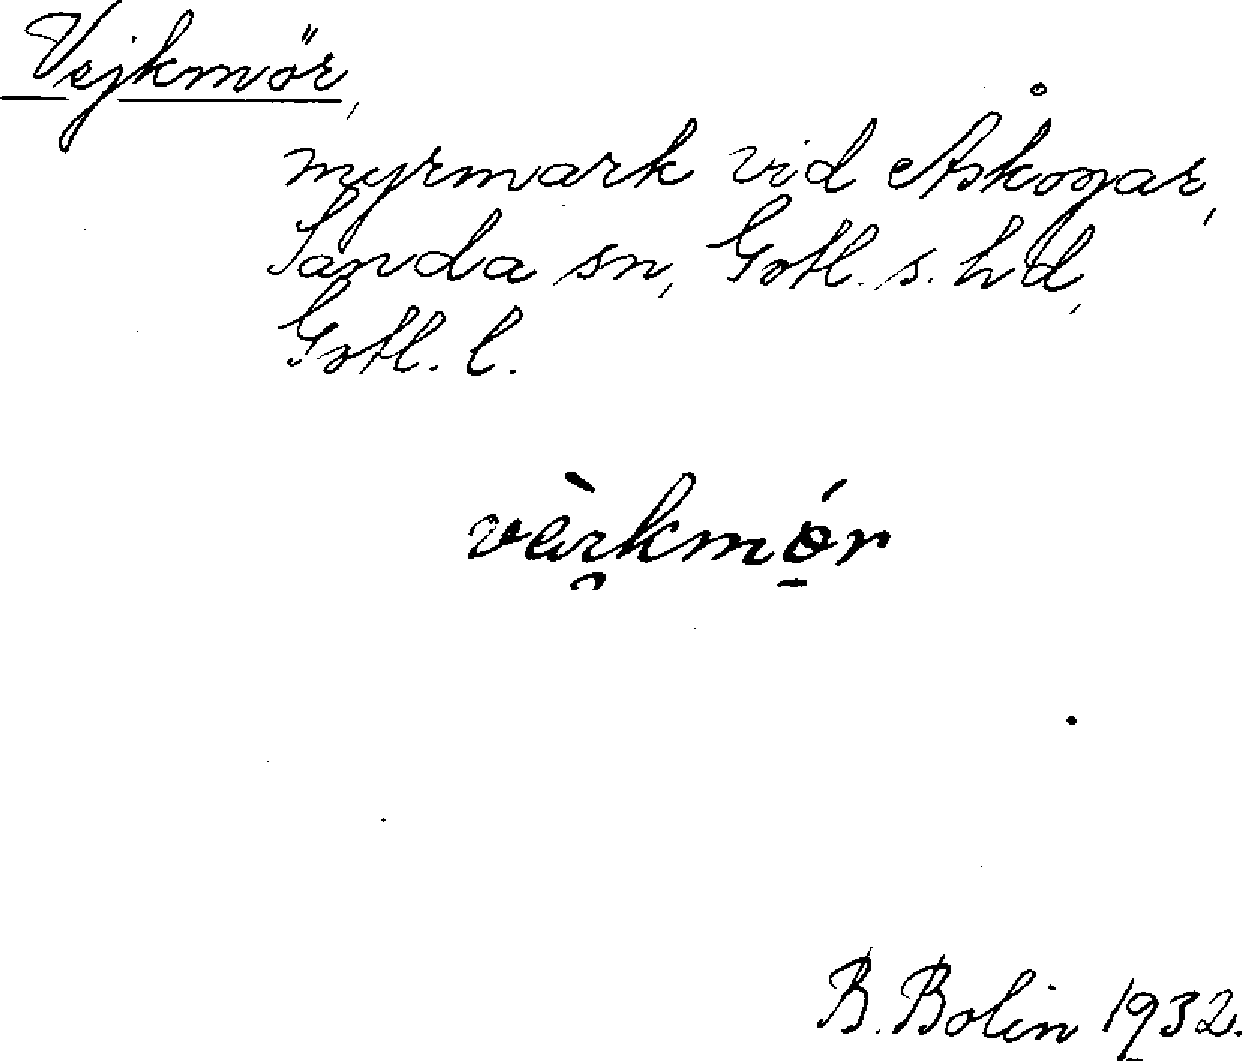 Vejkmör,
myrmark vid Åskogar,
Sanda sn, Gotl. s. hd,
Gotl. l.
B. Bolin 1932.